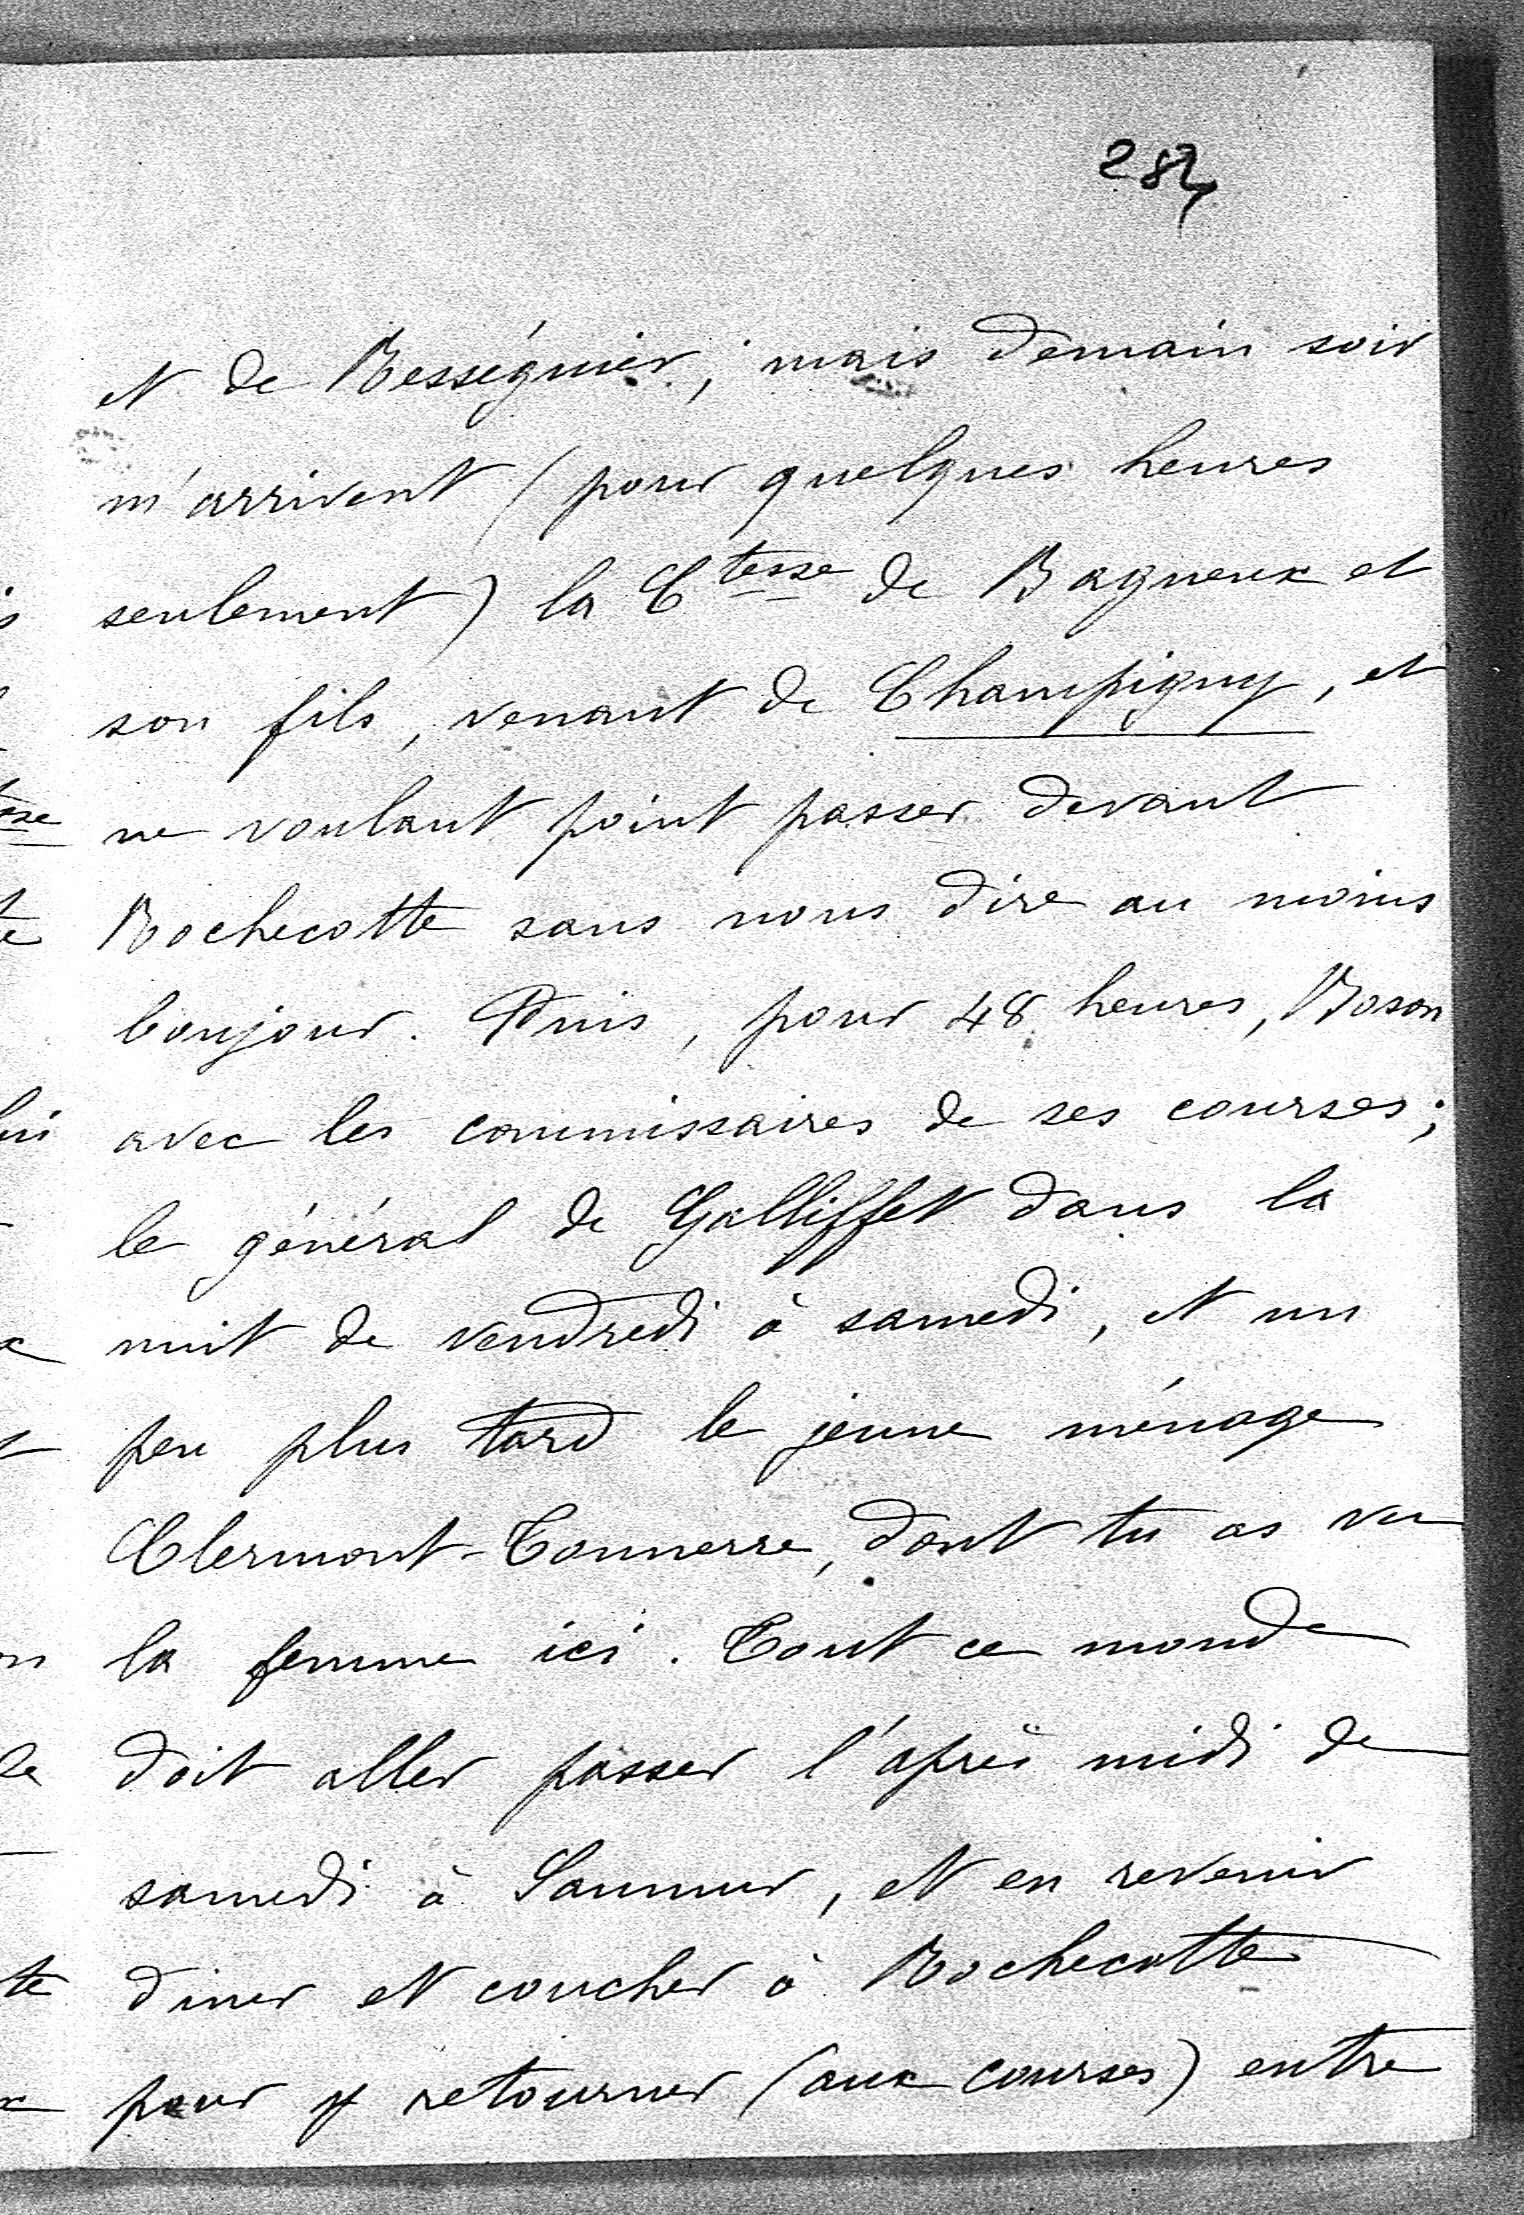 et de Rességuier ; mais demain soir
m'arrivent (pour quelques heures
seulement) la Ctesse de Bagneux et
son fils, venant de Champigny, et
ne voulant point passer devant
Rochecotte sans nous dire au moins
bonjour. Puis, pour 48 heures, Boson
avec les commissaires de ses courses ;
le général de Galliffet dans la
nuit de vendredi à samedi, et un
peu plus tard le jeune ménage
Clermont-Tonnerre, dont tu as vu
la femme ici. Tout ce monde
doit aller passer l'après midi de
samedi à Saumur, et en revenir
diner et coucher à Rochecotte
pour y retourner (aux courses) entre